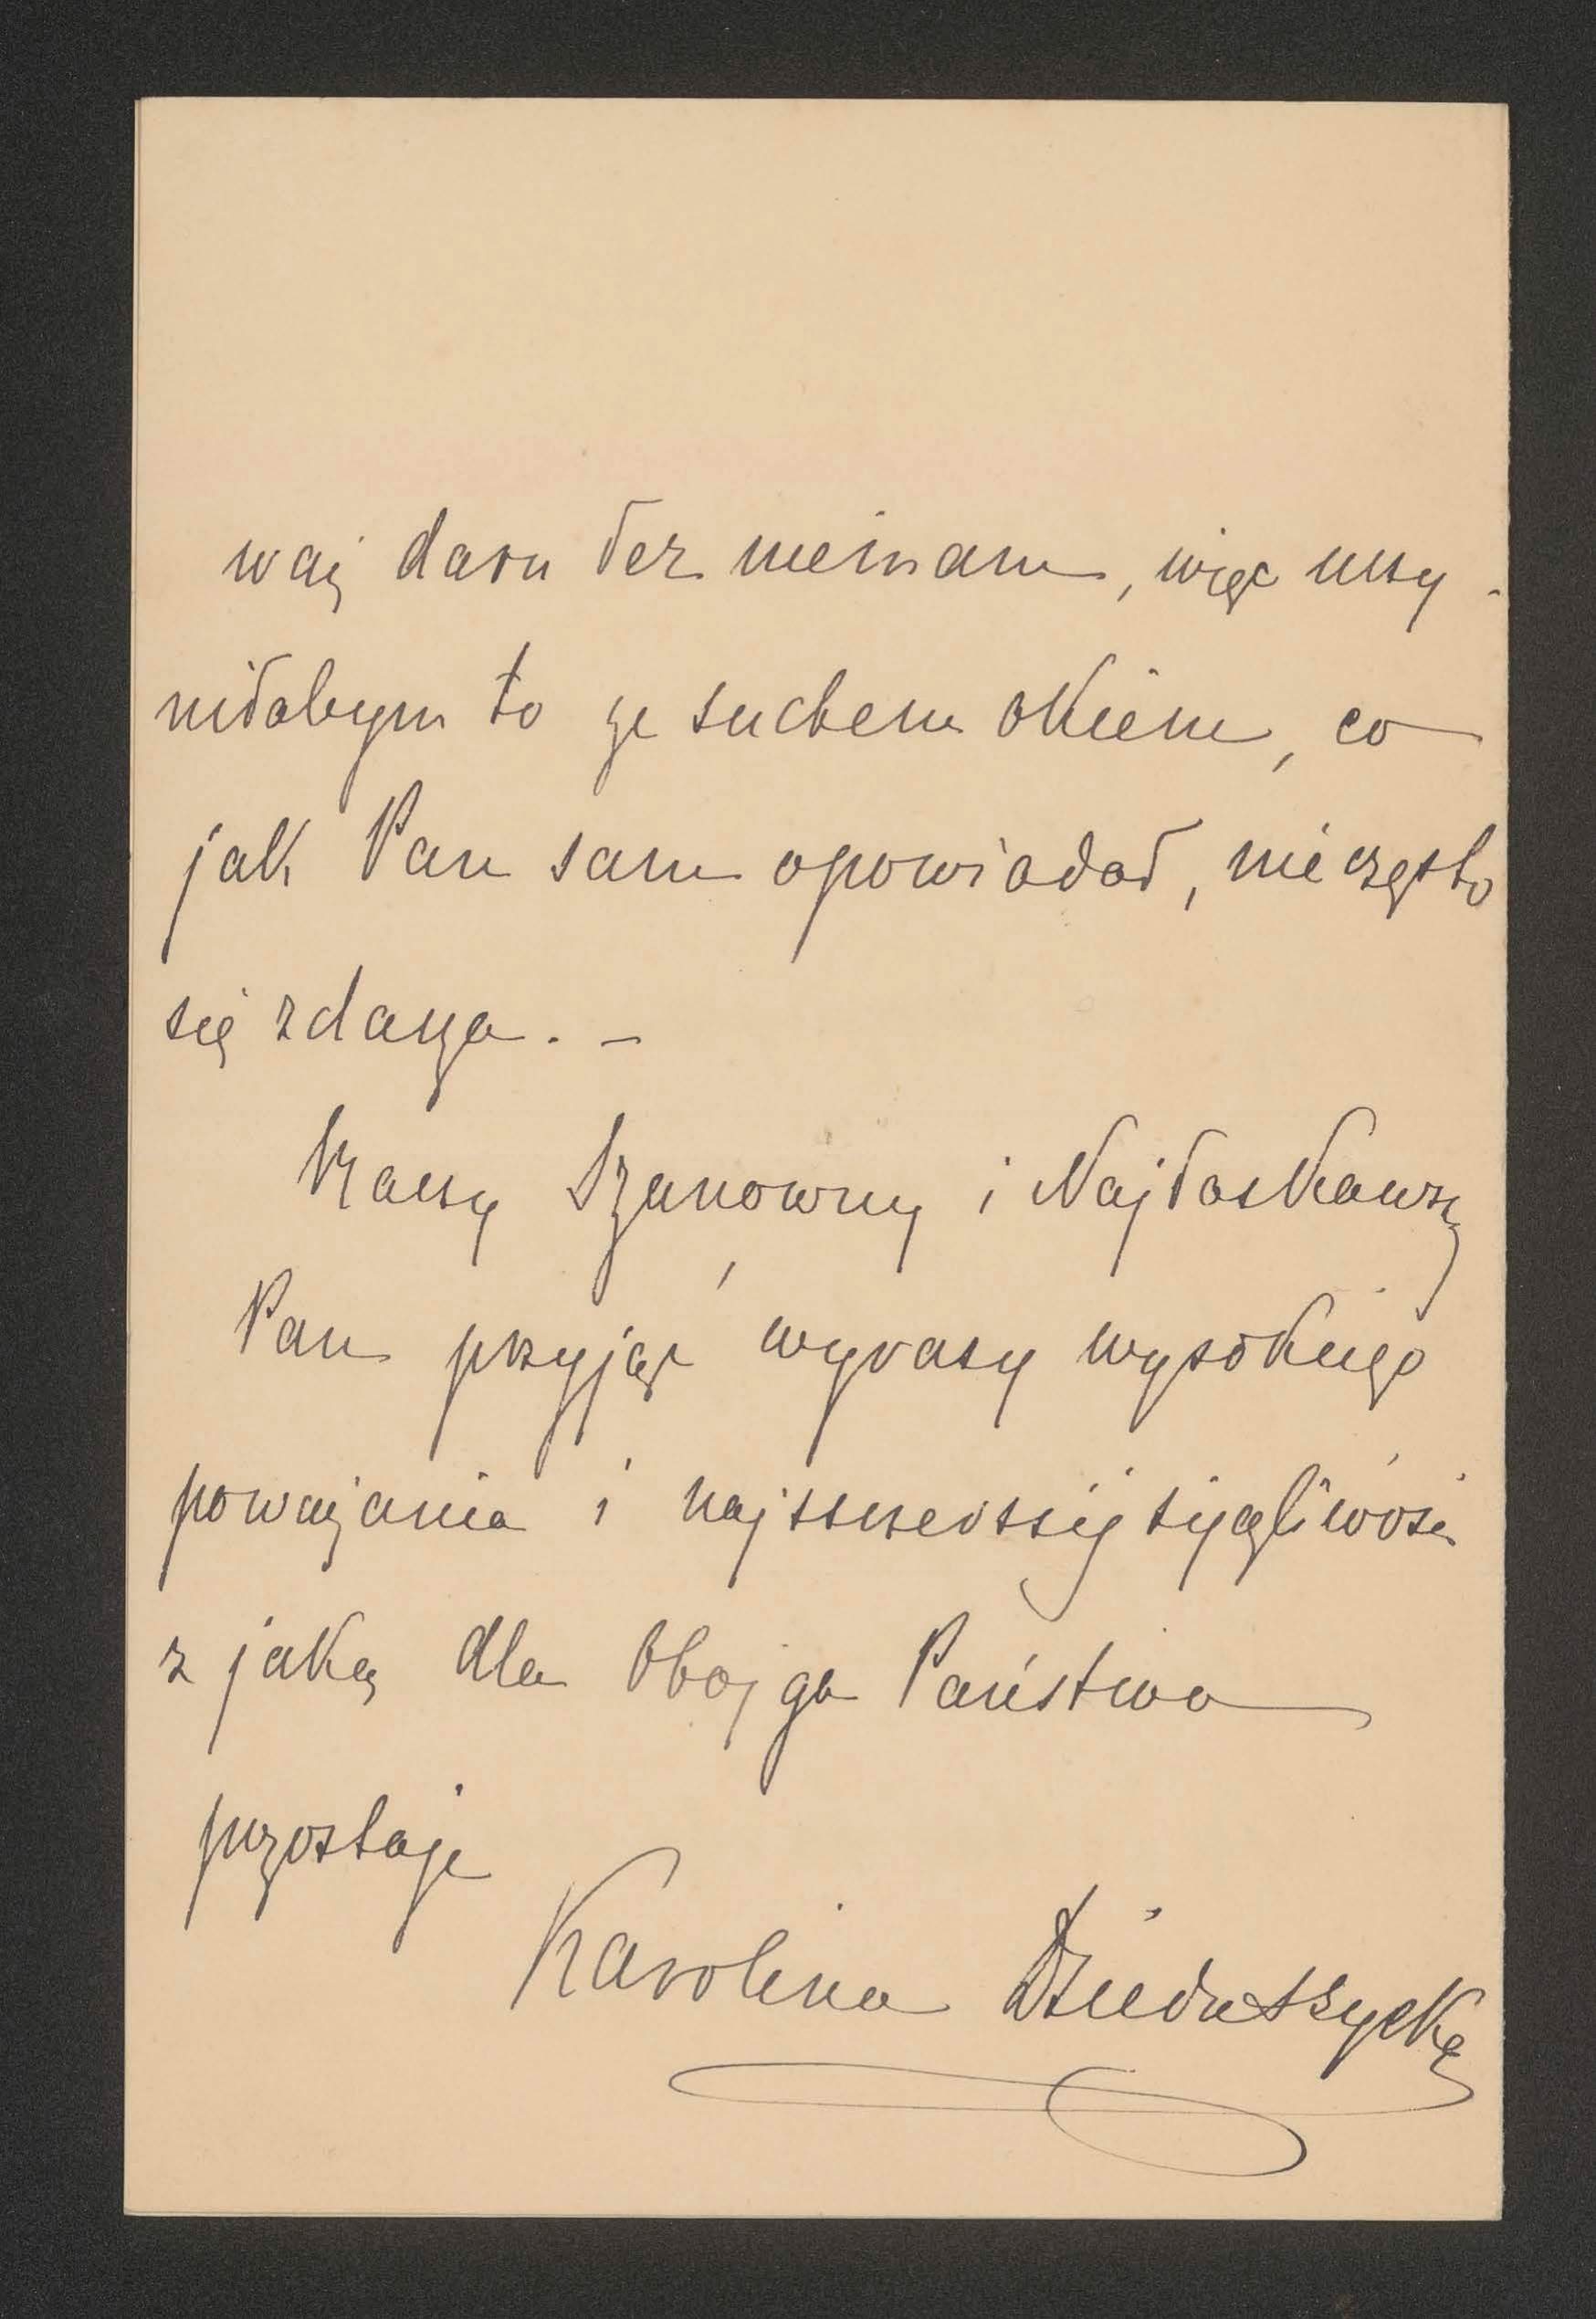 waż daru łez nie mam, więc uczy-
niłabym to ze suchem okiem, co
jak Pan sam opowiadał, nie często
się zdarza. –
Raczy Szanowny i Najłaskawszy
Pan przyjąć wyrazy wysokiego
poważania i najszczerszej życzliwości
z jaką dla Obojga Państwa
pozostaję
Karolina Dzieduszycka